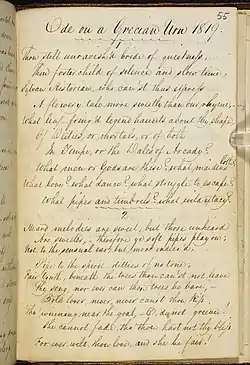 55
Ode on a Grecian Urn 1819.
1
Thou still unravish'd bride of quietness,
Thou foster child of silence and slow time,
Sylvan Historian, who canst thus express
A flowery tale more sweetly than our rhyme;
What leaf fring'd legend haunts about thy shape
Of Deities, or mortals, or of both
In Tempe, or the Dales of Arcady?
What men or Gods are these? what maidens loth?
What love? what dance? what struggle to escape?
What pipes and timbrels? what wild extacy!
2
Heard melodies are sweet, but those unheard
Are sweeter, therefore ye soft pipes play on;
Not to the sensual ear, but more endear'd
Pipe to the spirit ditties of no tone;
Fair youth, beneath the trees thou can'st not leave
Thy song, nor ever can those trees be bare,
Bold lover, never, never canst thou kiss,
Tho' winning near the goal, O, do not grieve!
She cannot fade, tho' thou hast not thy bliss
For ever wilt thou love, and she be fair.